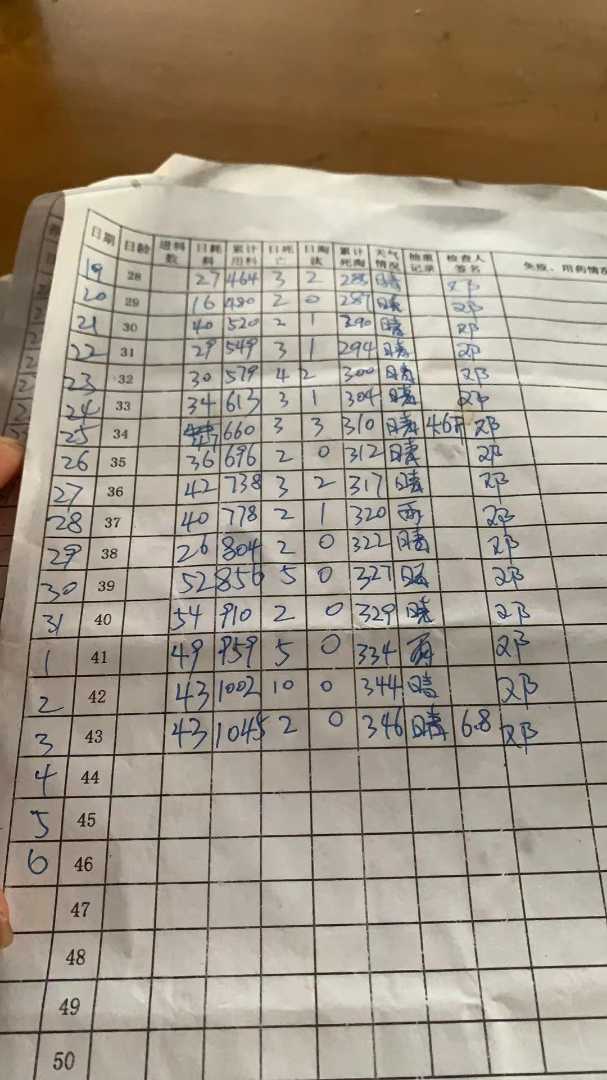 日期 日龄 进料数 日耗料 累计用料 日死亡 日淘汰 累计死淘 天气情况 抽重记录 检查人签名 免疫、用药情况
19 28 27 464 3 2 285 晴 邓
20 29 16 480 2 0 287 晴 邓
21 30 40 520 2 1 290 晴 邓
22 31 29 549 3 1 294 晴 邓
23 32 30 579 4 2 300 晴 邓
24 33 34 613 3 1 304 晴 邓
25 34 47 660 3 3 310 晴 邓
26 35 36 696 2 0 312 晴 邓
27 36 42 738 3 2 317 晴 邓
28 37 40 778 2 1 320 雨 邓
29 38 26 804 2 0 322 晴 邓
30 39 52 856 5 0 327 晴 邓
31 40 54 910 2 0 329 晴 邓
1 41 49 959 5 0 334 雨 邓
2 42 43 1002 10 0 344 晴 邓
3 43 43 1045 2 0 346 晴 6.8 邓
4 44
5 45
6 46
47
48
49
50